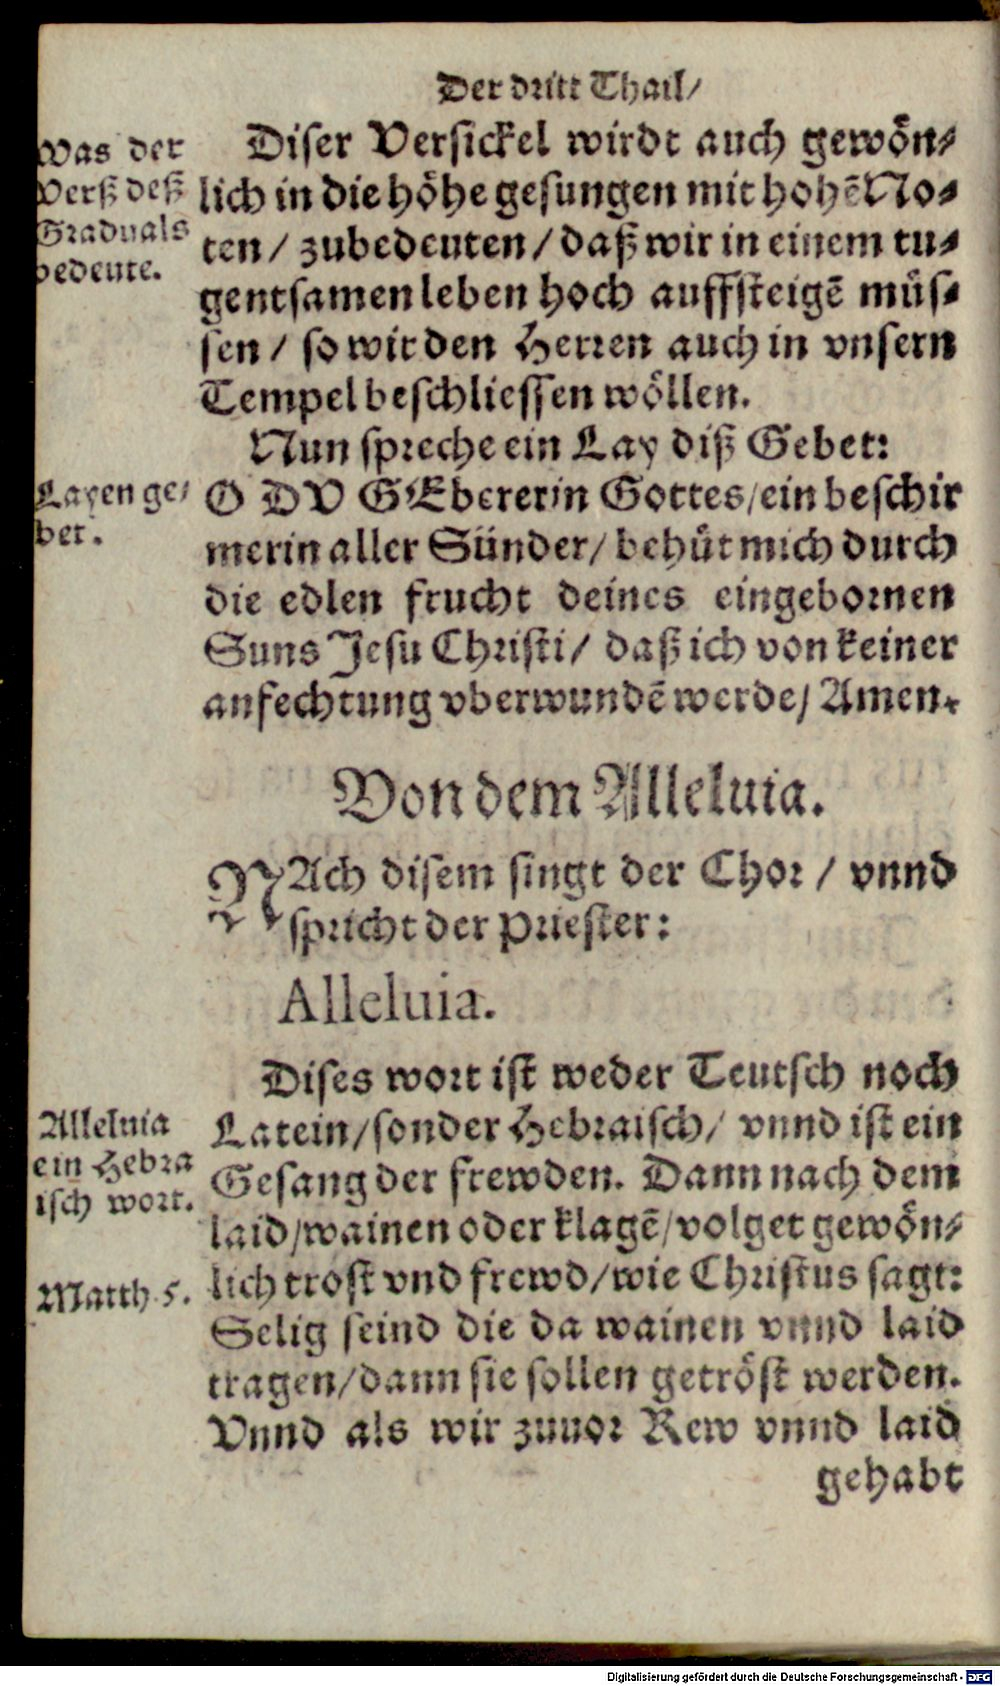 Der dritt Thail/
Was der
Verß deß
Graduals
bedeute.
Diser Versickel wirdt auch gewön⸗
lich in die höhe gesungen mit hohẽ No⸗
ten / zubedeuten / daß wir in einem tu⸗
gentsamen leben hoch auffsteigẽ müs⸗
sen / so wir den Herren auch in vnsern
Tempel beschliessen wöllen.
Nun spreche ein Lay diß Gebet:
Layen ge⸗
bet.
O DV GEbererin Gottes/ein beschir
merin aller Sünder/ behüt mich durch
die edlen frucht deines eingebornen
Suns Jesu Christi/ daß ich von keiner
anfechtung vberwundẽ werde/ Amen.
Von dem Alleluia.
NAch disem singt der Chor / vnnd
spricht der Priester:
Alleluia.
Dises wort ist weder Teutsch noch
Alleluia
ein Hebra
isch wort.
Latein/sonder Hebraisch/ vnnd ist ein
Gesang der frewden. Dann nach dem
laid/wainen oder klagẽ/volget gewön⸗
Matth. 5.
lich trost vnd frewd/wie Christus sagt:
Selig seind die da wainen vnnd laid
tragen/dann sie sollen getröst werden.
Vnnd als wir zuuor Rew vnnd laid
gehabt
Digitalisierung gefördert durch die Deutsche Forschungsgemeinschaft - DFG